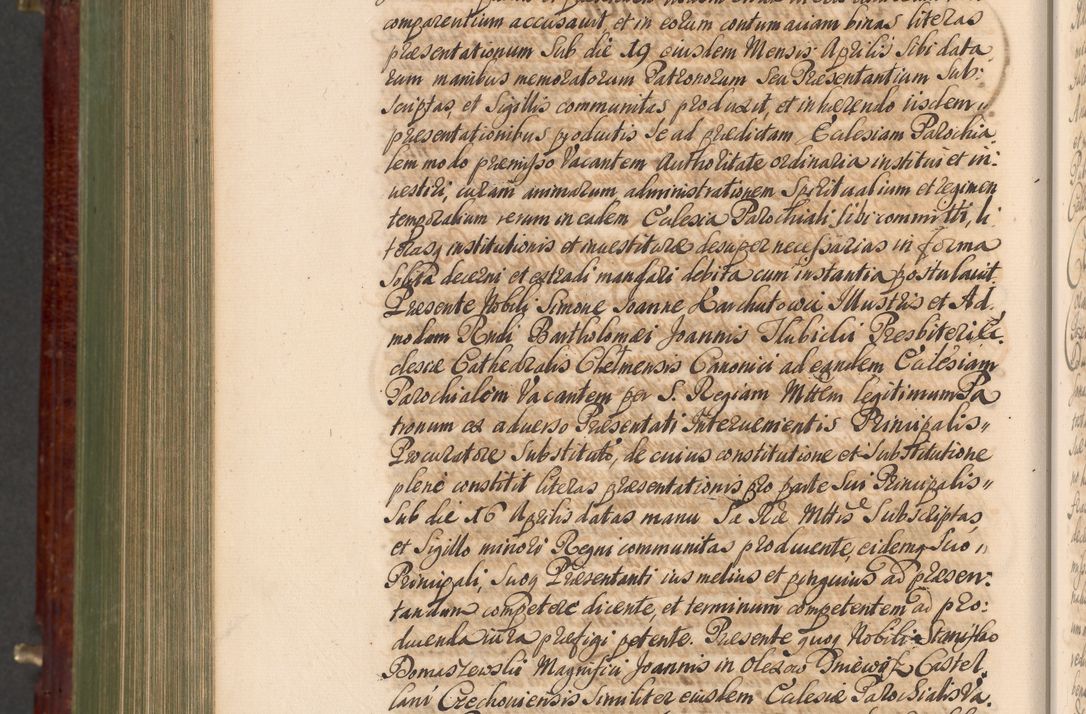 comparentium accusavit et in eorum contumaciam binas literas
præsentationum Sub die 19 eiusdem Mensis Aprilis Sibi data
rum manibus memoratorum Patronorum Seu Præsentantium Sub:
scriptas, et Sigillis communitas produxit, et inhærendo iisdem
præsentationibus productis se ad prædictam Ecclesiam Parochia
lem modo præmisso Vacantem Authoritate ordinaria institui et in:
vestiri, curam animarum administrationem Spiritualium et regimen
temporalium rerum in eadem Ecclesia Parochiali sibi committi, li
terasq institutionis et investituræ desuper necessarias in forma
Solita decerni et extradi mandari debita cum instantia postulavit
Præsente Nobili Simone Joanne Karchutowi Illustris et Ad
modum Rndi Bartholomæi Joannis Hubicki Presbiteri Ec
clesiæ Cathedralis Chelmensis Canonici ad eandem Ecclesiam
Parochialem Vacantem per S. Regiam Mttem legitimum Pa
tronum ex adverso Præsentati Intervenientis Principalis
Procuratore Substituto, de cuius constitutione et Substitutione
plene constitit literas præsentationis pro parte Sui Principalis
Sub die 16 Aprilis datas manu Sa Ræ Mttis Subscriptas
et Sigillo minori Regni communitas producente, eidemq Suo
Principali, Suoq Præsentanti ius melius et pinguius ad præsen:
tandum competere dicente, et terminum competentem ad pro:
ducenda iura præfigi petente. Præsente quoq Nobili Stanislao
Domaszewski Magnifici Joannis in Olexow Gniewosz Castel
lani Czechoviensis Similiter eiusdem Ecclesiæ Parochialis Va